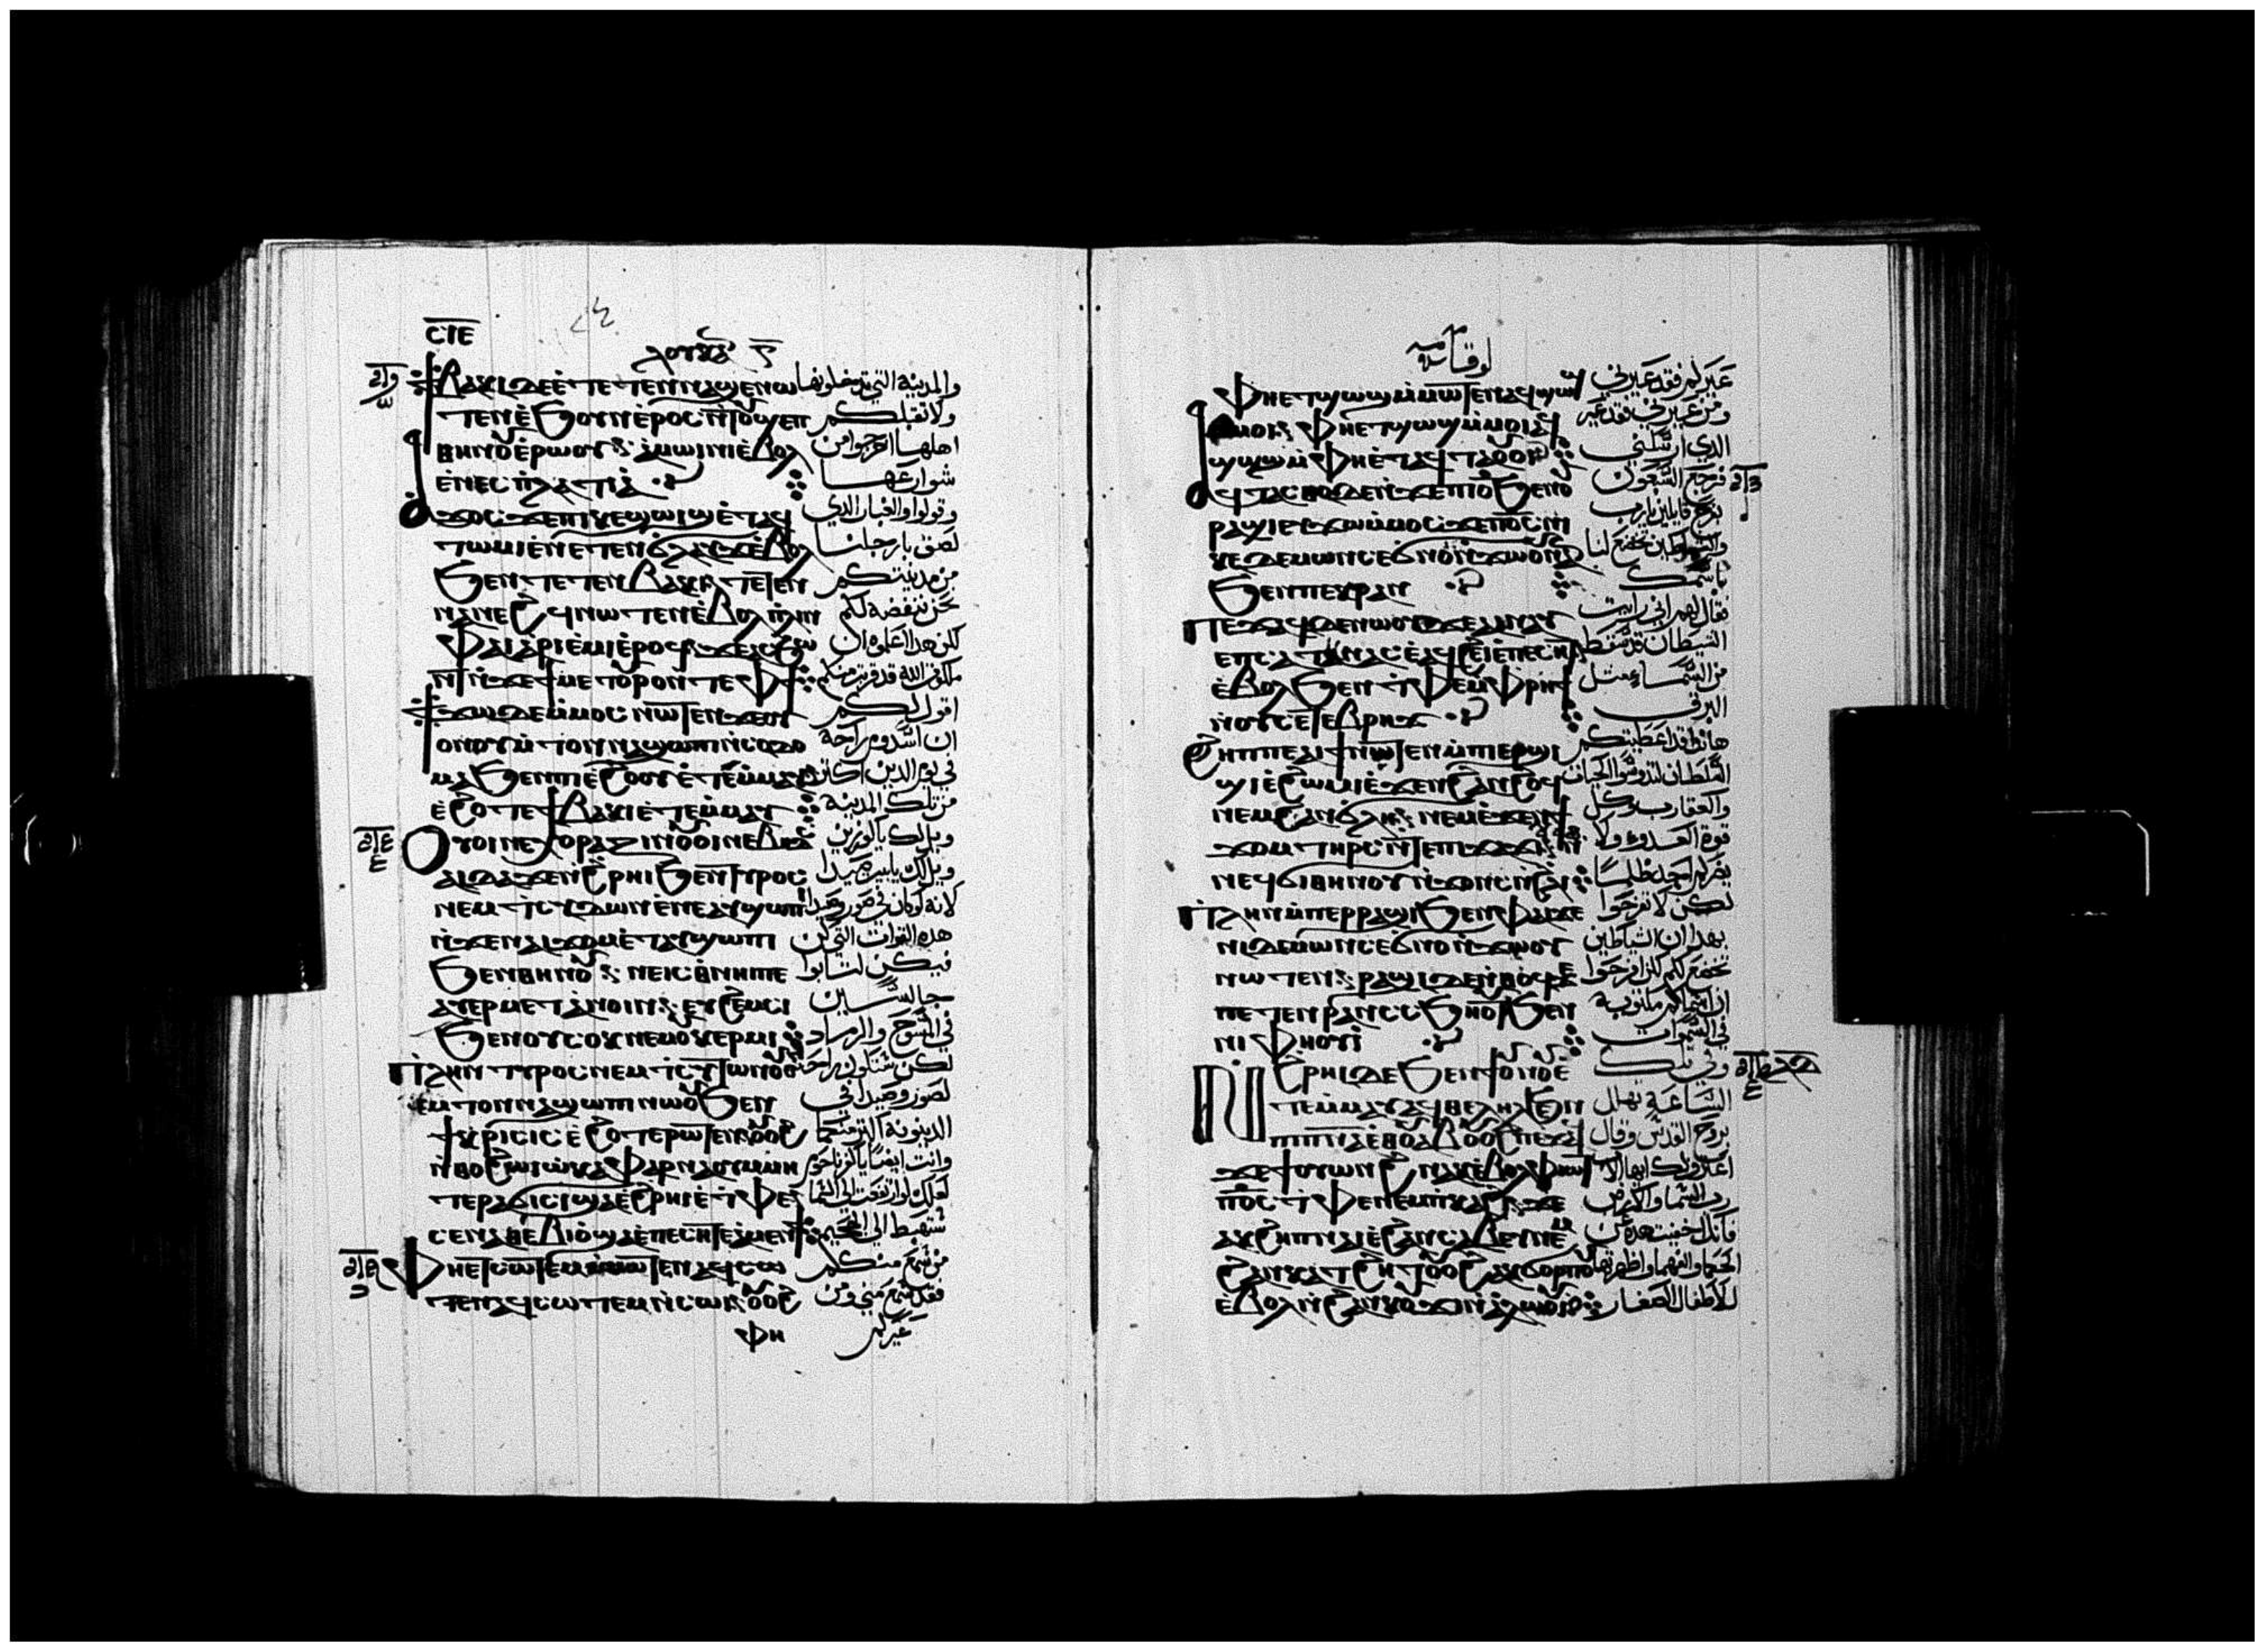 ⲥ̅ⲓ̅ⲉ̅
ⲗⲟⲩⲕⲁ
ϯⲃⲁⲕⲓ ⲇⲉ ⲉⲧⲉⲧⲉⲛⲛⲁϣⲉⲛⲱ والمدينة التي تدخلونها
ⲧⲉⲛ ⲉϧⲟⲩⲛ ⲉⲣⲟⲥ ⲛⲧⲟⲩϣⲉⲡ ولا تقبلكم
ⲑⲏⲛⲟⲩ ⲉⲣⲱⲟⲩ ⲁⲙⲱⲓⲛⲓ ⲉⲃⲟⲗ اهلها اخرجوا من
ⲉⲛⲉⲥⲡⲗⲁⲧⲓⲁ شوارعها
ⲁϫⲟⲥ ϫⲉ ⲡⲓⲕⲉϣⲱⲓϣ ⲉⲧⲁϥ وقولوا والغبار الذي
ⲧⲱⲙⲓ ⲉⲛⲉⲧⲉⲛϭⲁⲗⲁⲩϫ ⲉⲃⲟⲗ لصق بارجلنا
ϧⲉⲛ ⲧⲉⲧⲉⲛⲃⲁⲕⲓ ⲧⲉⲛ من مدينتكم
ⲛⲁⲛⲉϩϥ ⲛⲱⲧⲉⲛ ⲉⲃⲟⲗ ⲡⲗⲏⲛ نحن ننفضه لكم
ⲫⲁⲓ ⲁⲣⲓⲉⲙⲓ ⲉⲣⲟϥ ϫⲉ ⲁⲥϧⲱ لكن هذا اعلموه ان
ⲛⲧ ⲛϫⲉ ϯⲙⲉⲧⲟⲩⲣⲟ ⲛⲧⲉ ⲫϯ ملكوت الله قد قربت منكم
ϯϫⲱ ⲇⲉ ⲙⲙⲟⲥ ⲛⲱⲧⲉⲛ ϫⲉ ⲟⲩ اقول لكم
ⲟⲛ ⲟⲩⲙⲧⲟⲛ ⲛⲁϣⲱⲡⲓ ⲛⲥⲟⲇⲟ ان لسدوم راحة
ⲙⲁ ϧⲉⲛ ⲡⲓⲉϩⲟⲟⲩ ⲉⲧⲉⲙⲙⲁⲩ في يوم الدين اكثر
ⲉϩⲟⲧⲉ ϯⲃⲁⲕⲓ ⲉⲧⲉⲙⲙⲁⲩ من تلك المدينة
ⲟⲩⲟⲓ ⲛⲉ ⲭⲟⲣⲁⲍⲓⲛ ⲟⲩⲟⲓ ⲛⲉ ⲃⲏⲑⲥ ويل لك يا كورزين
ⲁⲓⲇⲁ ϫⲉ ⲛϩⲣⲏⲓ ϧⲉⲛ ⲧⲩⲣⲟⲥ ويل لك يا بيت صيدا
ⲛⲉⲙ ⲧⲥⲓⲇⲱⲛ ⲉⲛⲉ ⲁⲩϣⲱⲡⲓ لانه لو كان في صور وصيدا
ⲛϫⲉ ⲛⲁⲓϫⲟⲙ ⲉⲧⲁⲩϣⲱⲡⲓ هذه القوات التي كن
ϧⲉⲛ ⲑⲏⲛⲟⲩ ⲛⲉ ⲓⲥ ⲑⲛⲏ ⲡⲉ فيكن لتابوا
ⲁⲩⲉⲣⲙⲉⲧⲁⲛⲟⲓⲛ ⲉⲩϩⲉⲙⲥⲓ جالسين
ϧⲉⲛ ⲟⲩⲥⲟⲕ ⲛⲉⲙ ⲟⲩⲕⲉⲣⲙⲓ في المسوح والرماد
ⲡⲗⲏⲛ ⲧⲩⲣⲟⲥ ⲛⲉⲙ ⲧⲥⲓⲇⲱⲛ ⲟⲩ لكن ستكون راحة
ⲉⲙⲧⲟⲛ ⲛⲁϣⲱⲡⲓ ⲛⲱⲟⲩ ϧⲉⲛ لصور وصيدا في
ϯⲕⲣⲓⲥⲓⲥ ⲉϩⲟⲧⲉⲣⲱⲧⲉⲛ ⲟⲩⲟϩ الدينونة اكثر منكما
ⲛⲑⲟ ϩⲱⲓ ⲱ ⲕⲁⲫⲁⲣⲛⲁⲟⲩⲙ ⲙⲏ وانت ايضا يا كفرناحوم
ⲧⲉⲣⲁϭⲓⲥⲓ ϣⲁ ⲉϩⲣⲏⲓ ⲉⲧⲫⲉ لعلك لو ارتفعت الى السما
ⲥⲉⲛⲁⲑⲉⲃⲓⲟ ϣⲁ ⲉⲡⲉⲥⲏⲧ ⲉⲁⲙⲉⲛϯ ستهبط الى الجحيم
ⲫⲏ ⲉⲧⲥⲱⲧⲉⲙ ⲛⲥⲱⲧⲉⲛ ⲁϥⲥⲱ من سمع منكم
ⲧⲉⲙ ⲁϥⲥⲱⲧⲉⲙ ⲛⲥⲱⲓ ⲟⲩⲟϩ فقد سمع مني ومن
ⲫⲏ غيركم
لوقا
ⲫⲏ ⲉⲧϣⲱϣ ⲙⲙⲱⲧⲉⲛ ⲁϥϣⲱϣ غيركم فقد غيرني
ⲙⲙⲟⲓ ⲫⲏ ⲉⲧϣⲱϣ ⲙⲙⲟⲓ ⲁϥ ومن غيرني فقد غير
ϣⲱϣ ⲙⲫⲏ ⲉⲧⲁϥⲧⲁⲟⲩⲟⲓ الذي ارسلني
ⲁⲩⲧⲁⲥⲑⲟ ⲇⲉ ⲛϫⲉ ⲡⲓⲟ ϧⲉⲛ ⲟⲩ فرجع السبعون
ⲣⲁϣⲓ ⲉⲩϫⲱ ⲙⲙⲟⲥ ϫⲉ ⲡϭⲥ ⲛⲓ بفرح قايلين يا رب
ⲕⲉⲇⲉⲙⲱⲛ ⲥⲉϭⲛⲟ ⲛϫⲱⲟⲩ ⲛⲁⲛ والشياطين تخضع لنا
ϧⲉⲛ ⲡⲉⲕⲣⲁⲛ باسمك
ⲡⲉϫⲁϥ ⲇⲉ ⲛⲱⲟⲩ ϫⲉ ⲁⲓⲛⲁⲩ فقال لهم اني رايت
ⲉⲡⲥⲁⲧⲁⲛⲁⲥ ⲉⲁϥϩⲉⲓ ⲉⲡⲉⲥⲏⲧ الشيطان قد سقط
ⲉⲃⲟⲗ ϧⲉⲛ ⲧⲫⲉ ⲙⲫⲣⲏϯ من السما مثل
ⲛⲟⲩⲥⲉⲧⲉⲃⲣⲏϫ البرق
ϩⲏⲡⲡⲉ ⲁⲓϯ ⲛⲱⲧⲉⲛ ⲙⲡⲉⲣϣⲓ هانذا قد اعطيتكم
ϣⲓ ⲉϩⲱⲙⲓ ⲉϫⲉⲛ ϩⲁⲛϩⲟϥ السلطان لتدوسوا الحيات
ⲛⲉⲙ ϩⲁⲛϭⲗⲏ ⲛⲉⲙ ⲉϫⲉⲛ والعقارب وكل
ϫⲟⲙ ⲧⲏⲣⲥ ⲛⲧⲉ ⲡⲓϫⲁϫⲓ قوة العدو ولا
ⲛⲉϥϭⲓ ⲑⲏⲛⲟⲩ ⲛϫⲟⲛⲥ ⲛϩⲗⲓ يضركم احد ظلما
ⲡⲗⲏⲛ ⲙⲡⲉⲣⲣⲁϣⲓ ϧⲉⲛ ⲫⲁⲓ ϫⲉ لكن لا تفرحوا
ⲛⲓⲇⲉⲙⲱⲛ ⲥⲉϭⲛⲟ ⲛϫⲱⲟⲩ بهذا ان الشياطين
ⲛⲱⲧⲉⲛ ⲣⲁϣⲓ ⲇⲉ ⲛⲑⲟϥ ϫⲉ تخضع لكم لكن افرحوا
ⲛⲉⲧⲉⲛⲣⲁⲛ ⲥⲥϧⲏⲟⲩⲧ ϧⲉⲛ ان اسماكم مكتوبة
ⲛⲓⲫⲏⲟⲩⲓ في السموات
ⲛϩⲣⲏⲓ ⲇⲉ ϧⲉⲛ ϯⲟⲩⲛⲟⲩ ⲉ وفي تلك
ⲧⲉⲙⲙⲁⲩ ⲁϥⲑⲉⲗⲏⲗ ϧⲉⲛ الساعة تهلل
ⲡⲓⲡⲛⲁ ⲉⲑⲟⲩⲁⲃ ⲟⲩⲟϩ ⲡⲉϫⲁϥ بروح القدس وقال
ϫⲉ ϯⲟⲩⲱⲛϩ ⲛⲁⲕ ⲉⲃⲟⲗ ⲫⲓⲱⲧ اعترف لك ايها الاب
ⲡϭⲥ ⲛⲧⲫⲉ ⲛⲉⲙ ⲡⲕⲁϩⲓ ϫⲉ رب السما والارض
ⲁⲕϩⲉⲡ ⲛⲁⲓ ⲉϩⲁⲛⲥⲁⲃⲉⲩ ⲛⲉⲙ فانك اخفيت هذه عن
ϩⲁⲛⲕⲁⲧϩⲏⲧ ⲟⲩⲟϩ ⲁⲕϭⲟⲣⲡⲟⲩ الحكما والفهما واظهرتها
ⲉⲃⲟⲗ ⲛϩⲁⲛⲕⲟⲩϫⲓ ⲛⲁⲗⲱⲟⲩⲓ للاطفال الصغار